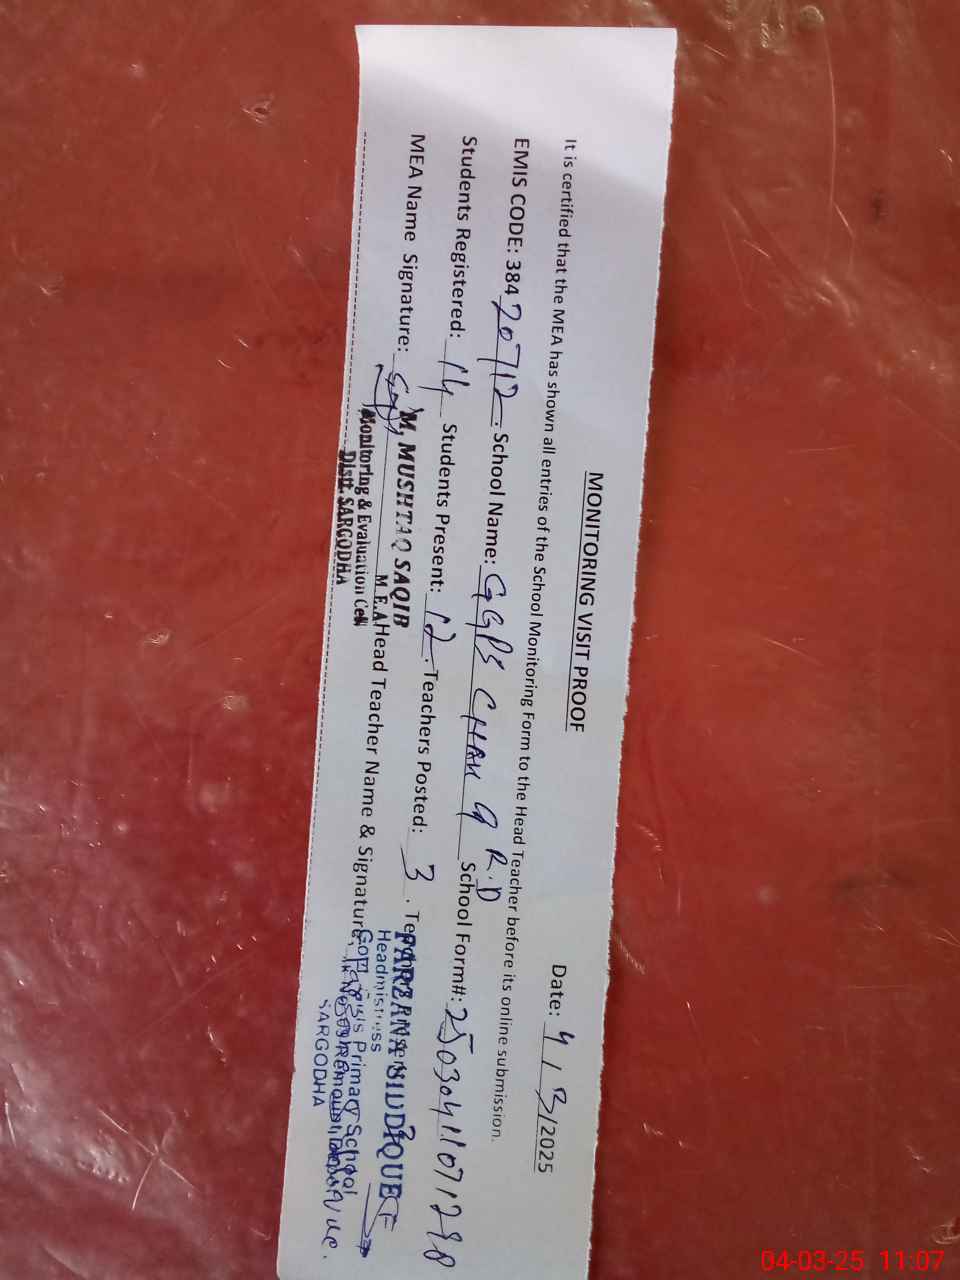 MONITORING VISIT PROOF
Date: 4/3/2025
It is certified that the MEA has shown all entries of the School Monitoring Form to the Head Teacher before its online submission.
EMIS CODE: 38420712. School Name: GGPS CHAK 9 R.D School Form#:
Students Registered: 14 Students Present: 12. Teachers Posted: 3.
MEA Name Signature: Head Teacher Name & Signature:
M. MUSHTAQ SAQIB
M.E.A
Monitoring & Evaluation Cell
Distt. SARGODHA
FARZANA SIDDIQUE
Headmistress
Primary School
SARGODHA
04-03-25 11:07